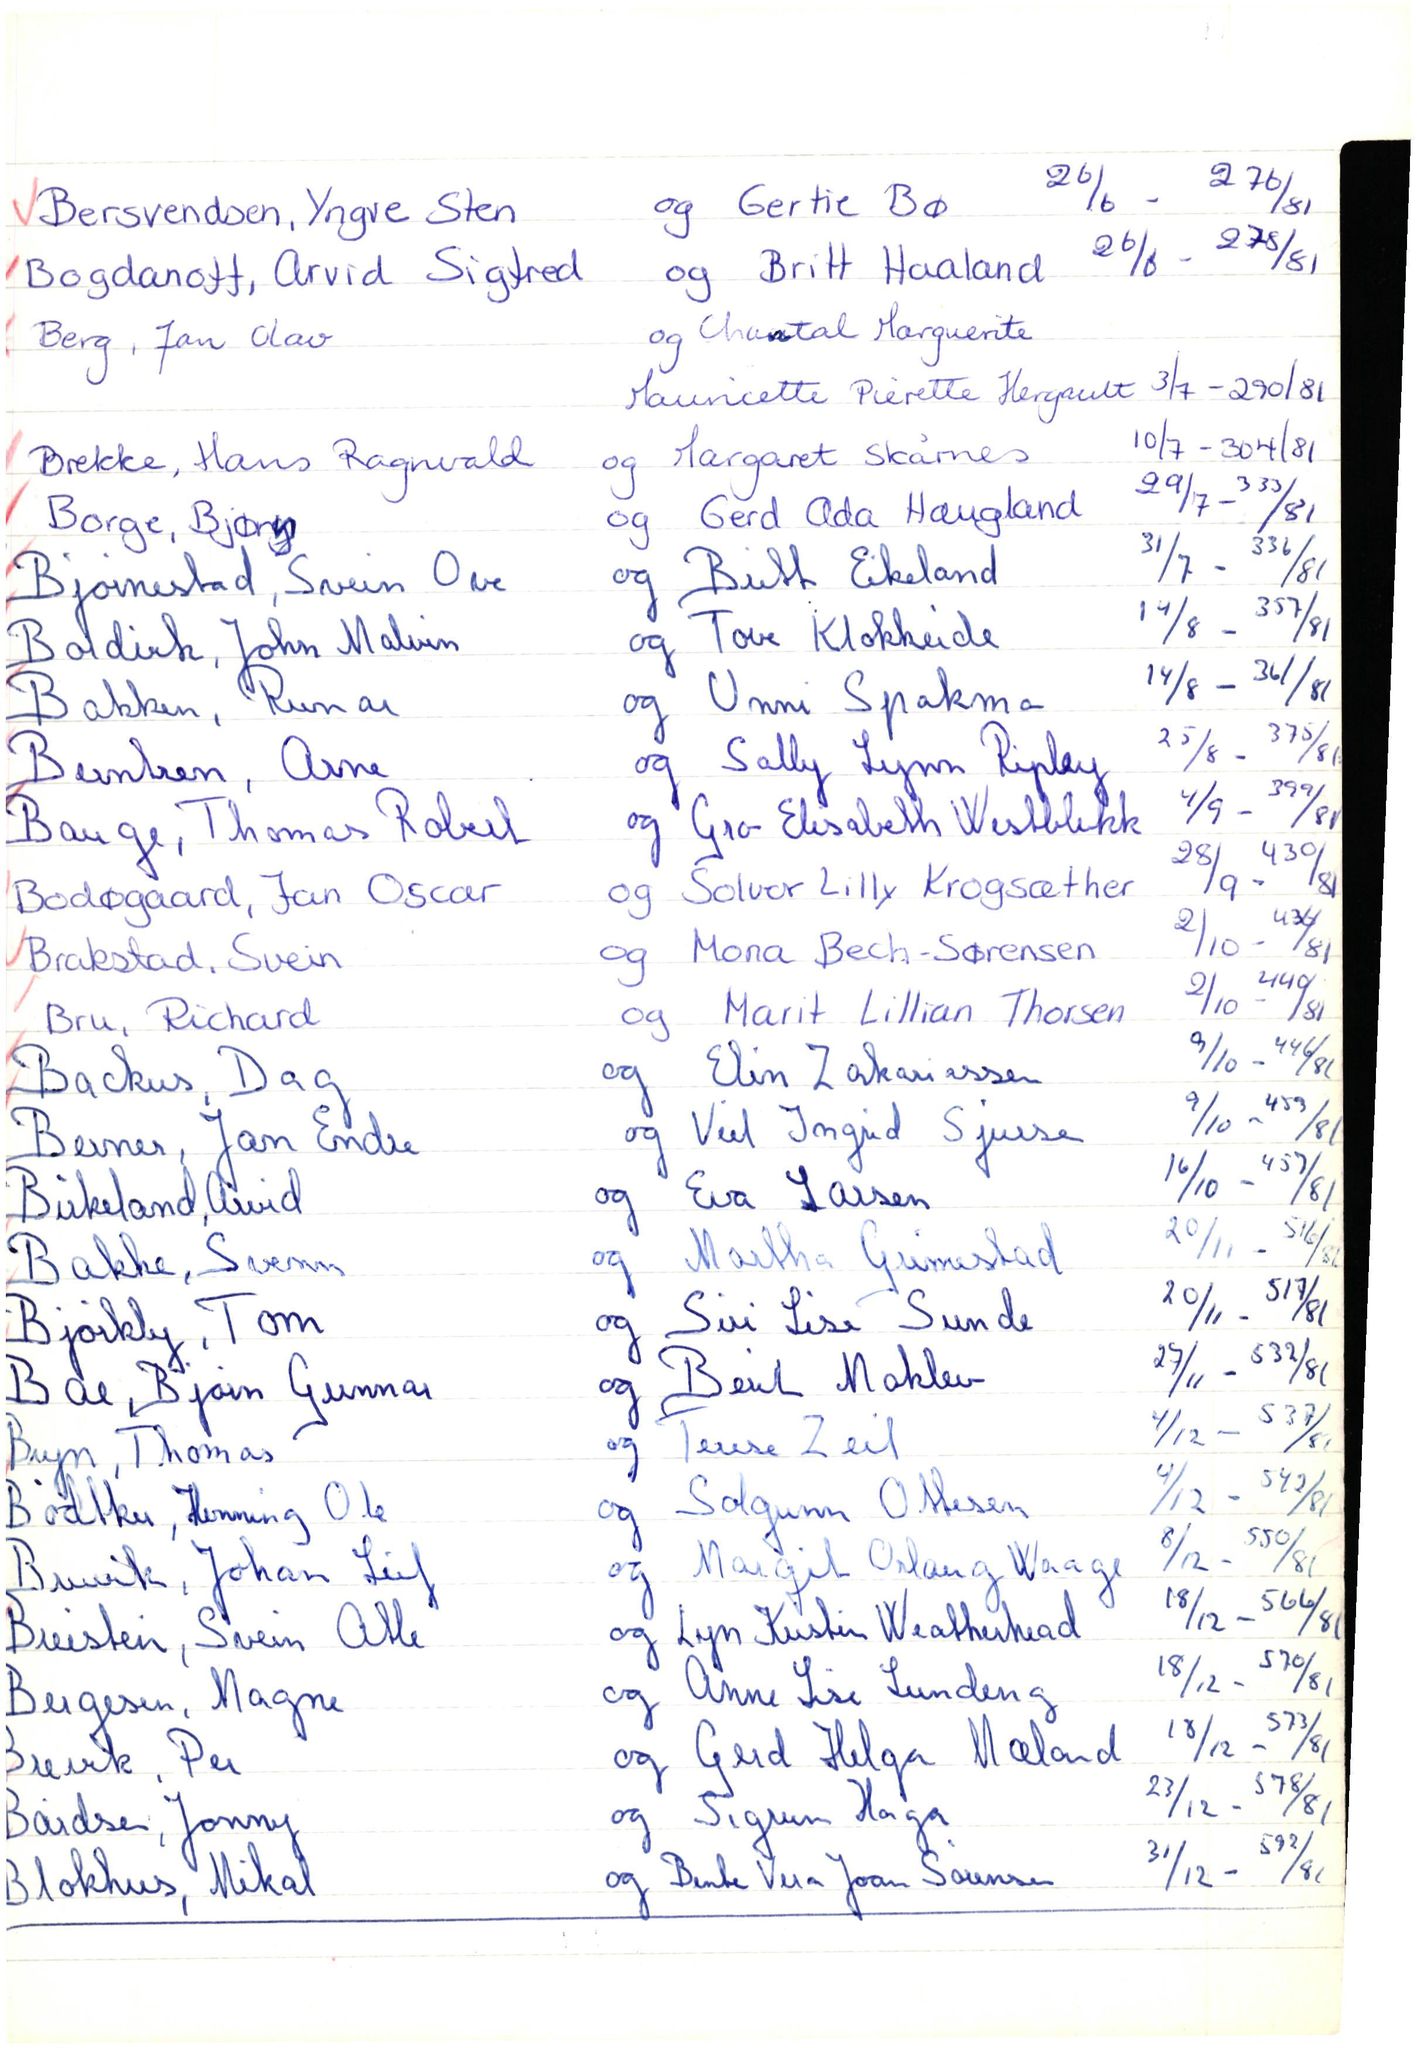 Bersvendsen, Yngve Sten og Gertie Bø 26/6 - 276/81
Bogdanoff, Arvid Sigfred og Britt Haaland 26/6 - 278/81
Berg, Jan Olav og Chantal Marguerite
Mauricette Pierette Hergault 3/7 - 290/81
Brekke, Hans Ragnvald og Margaret Skårnes 10/7 - 304/81
Borge, Bjørn og Gerd Ada Haugland 29/7 - 333/81
Bjørnestad, Svein Ove og Britt Eikeland 31/7 - 336/81
Boldirk, John Malvin og Tove Klokkeide 14/8 - 357/81
Bakken, Runar og Unni Spakmo 14/8 - 361/81
Berntsen, Arne og Sally Lynn Ripley 25/8 - 375/81
Bauge, Thomas Robert og Gro Elisabeth Westblikk 4/9 - 399/81
Bodøgaard, Jan Oscar og Solvor Lilly Krogsæther 28/9 - 430/81
Brakstad, Svein og Mona Bech-Sørensen 2/10 - 436/81
Bru, Richard og Marit Lillian Thorsen 2/10 - 440/81
Backus, Dag og Elin Zakariassen 9/10 - 446/81
Berner, Jan Endre og Ingrid Sjursen 9/10 - 453/81
Birkeland, Arvid og Eva Larsen 16/10 - 457/81
Bakke, Svenn og Martha Grimestad 20/11 - 516/81
Bjørkly, Tom og Siri Lise Sunde 20/11 - 517/81
Bae, Bjørn Gunnar og Berit Moklev 27/11 - 532/81
Bryn, Thomas og Terese Zeil 4/12 - 537/81
Bødtker, Henning Ole og Solgunn Ottesen 4/12 - 542/81
Brevik, Johan Leif og Margit Oslaug Waage 8/12 - 550/81
Breistein, Svein Atle og Lyn Kirstin Weatherhead 18/12 - 566/81
Bergesen, Magne og Anne Lise Lundeng 18/12 - 570/81
Brevik, Per og Gerd Helga Mæland 18/12 - 573/81
Bårdsen, Jonny og Sigrun Haga 23/12 - 578/81
Blokhus, Mikal og Bente Vera Joan Sørensen 31/12 - 592/81